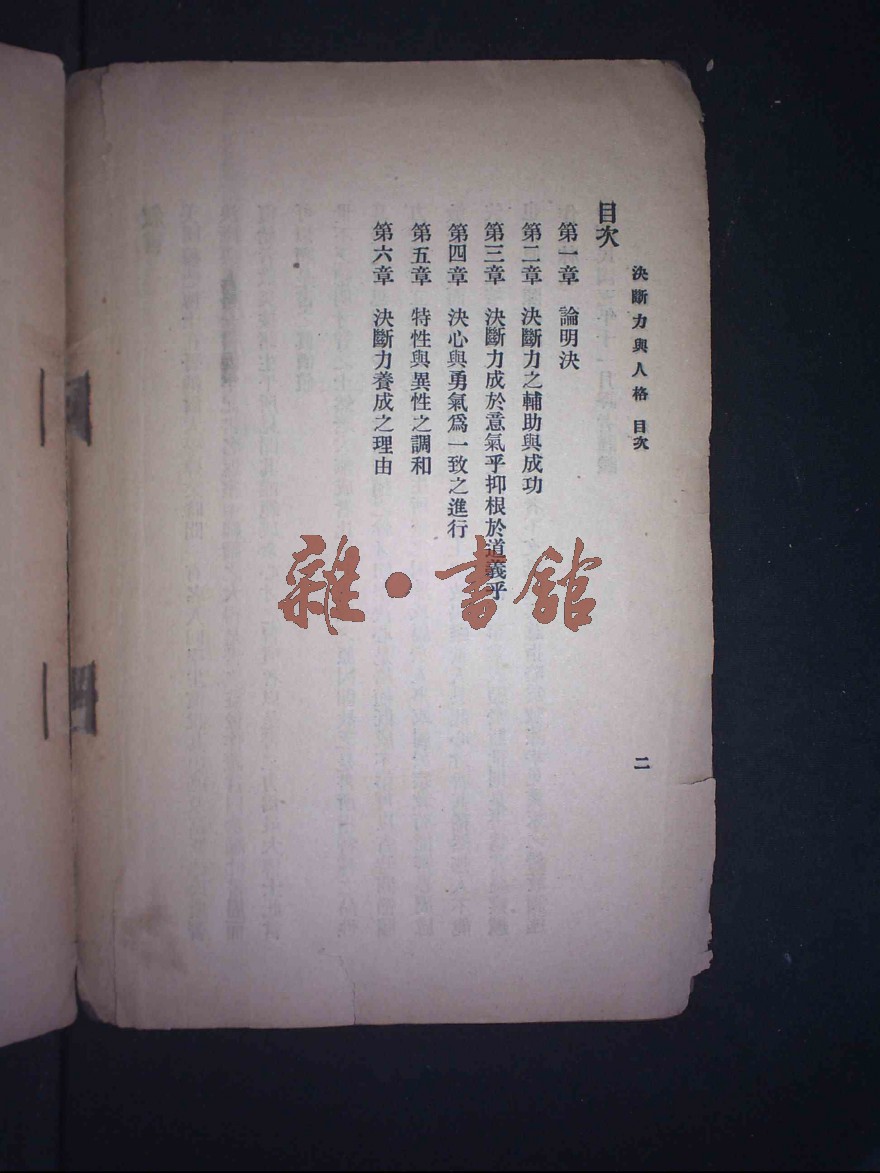 決斷力與人格 目次
二
目次
第一章 論明決
第二章 決斷力之輔助與成功
第三章 決斷力成於意氣乎抑根於道義乎
第四章 決心與勇氣爲一致之進行
第五章 特性與異性之調和
第六章 決斷力養成之理由
雜·書館